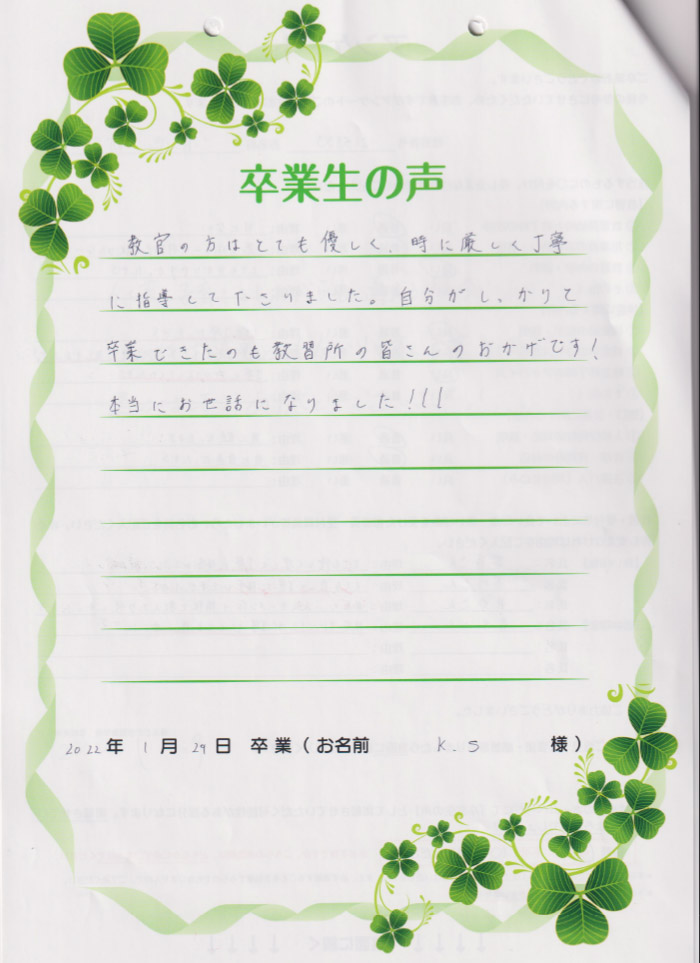 卒業生の声
教官の方はとても優しく、時に厳しく丁寧
に指導して下さりました。自分がしっかりて
卒業できたのも教習所の皆さんのおかげです!
本当にお世話になりました!!!
2022年 1月 29日 卒業(お名前 K.S 様)